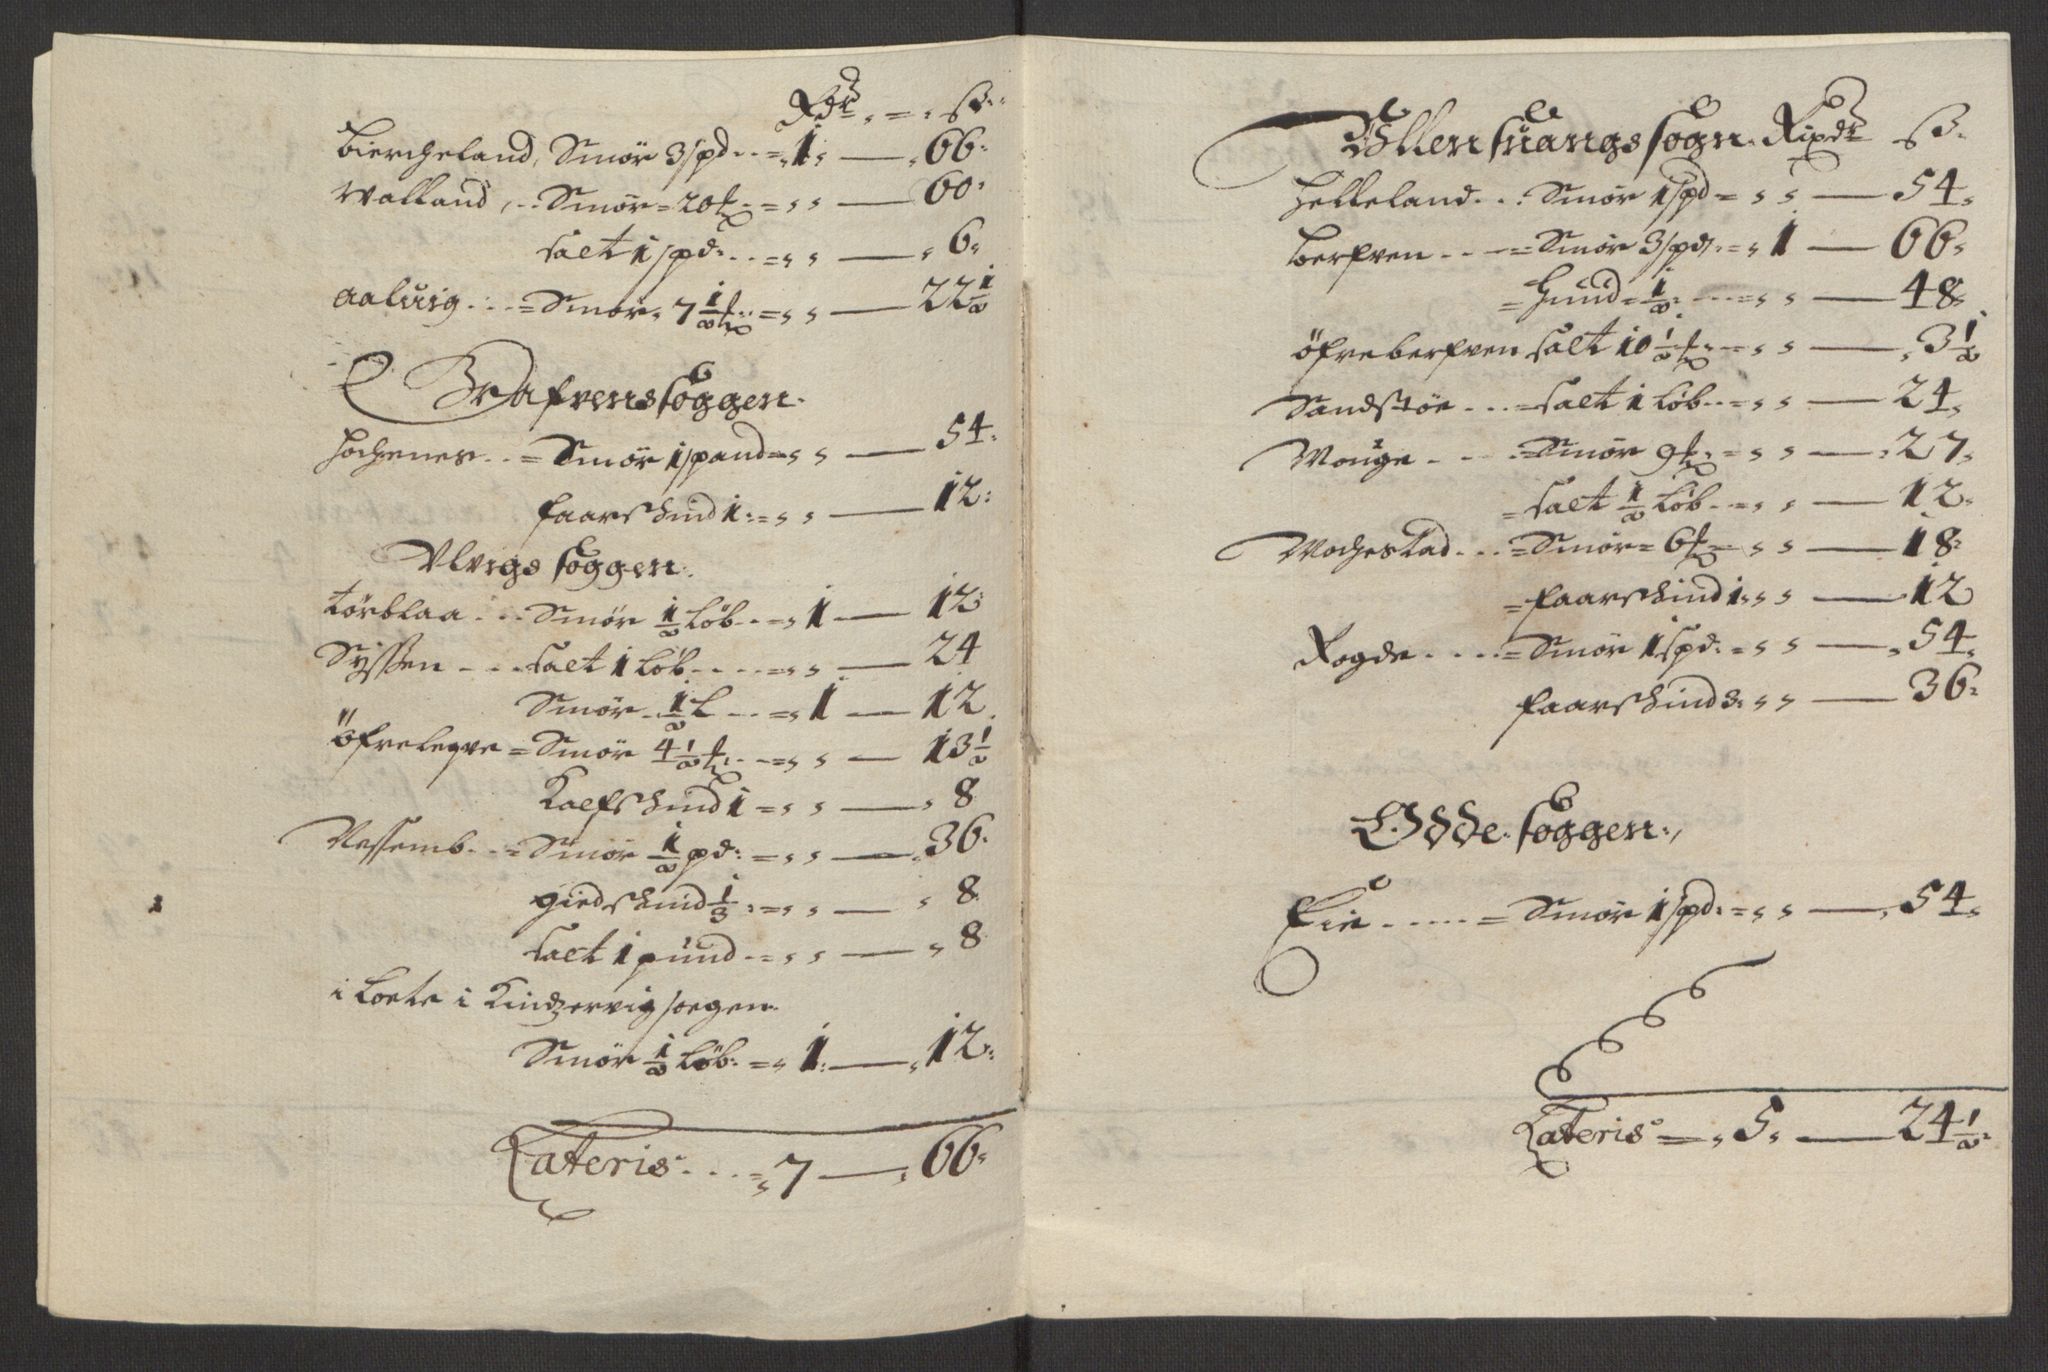 Rdr ß
Biercheland, Smör 3 spd 1 — 66
Walland, Smör 20 — 60
salt 1 spd — 6
Aaluig Smör 7 1/2 — 22 1/2
Grafvens soggen
Hochenes Smör 1 spand — 54
faarskind 1 — 12
Ulvigs soggen
Torblaa Smör 1/2 Löb 1 — 12
Syssen salt 1 Löb — 24
Smör 1/2 L 1 — 12
Öfrelegre Smör 4 1/2 — 13 1/2
Kalfskind 1 — 8
Nessemb Smör 1/2 pd — 36
giedskind 1/3 — 8
salt 1 pund — 8
i Loete i Kindzervig soegen
Smör 1/2 Löb 1 — 12
Lateris 7 — 66
Ullensuangs sogn Rixdr ß
Helleland Smör 1 spd — 54
Berfven Smör 3 spd 1 — 66
Hund 1/2 — 48
Öfreberfven salt 10 1/2 — 3 1/2
Sandstöe salt 1 Löb — 24
Mouge Smör 9 — 27
salt 1/2 Löb — 12
Mochestad Smör 6 — 18
faarskind 1 — 12
Rogde Smör 1 spd — 54
faarskind 3 — 36
Odde soggen
Eie Smör 1 spd — 54
Lateris 5 — 24 1/2